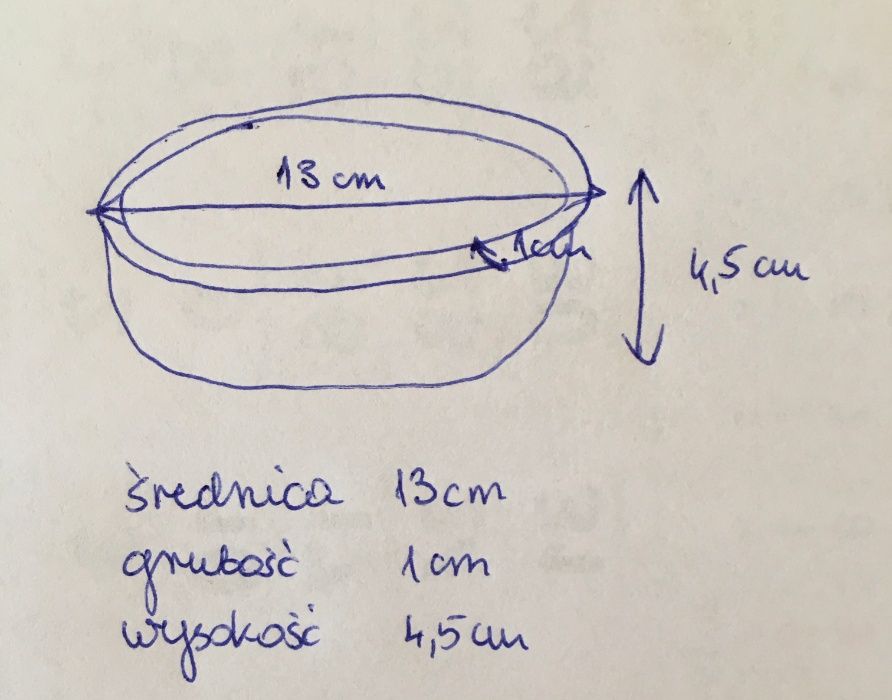 13 cm
1cm
4,5 cm
średnica 13 cm
grubość 1 cm
wysokość 4,5 cm